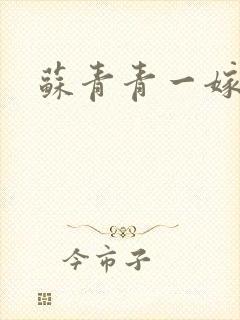 蘇青青一嫁
今市子